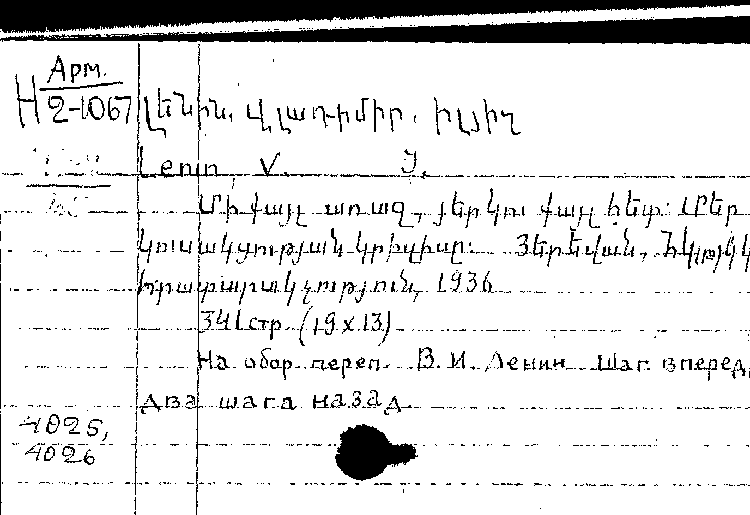 Арм.
Н 2-1067 Լենին, Վլադիմիր, Իլյիչ
Lenin, V. J.
Մի քայլ առաջ, յերկու քայլ հետ: Մեր
կուսակցության կրիզիսը: Յերեվան,
հրատարակչություն, 1936
341 стр. (19x13)
На обор. переп. В. И. Ленин Шаг вперед,
два шага назад.
4025,
4026